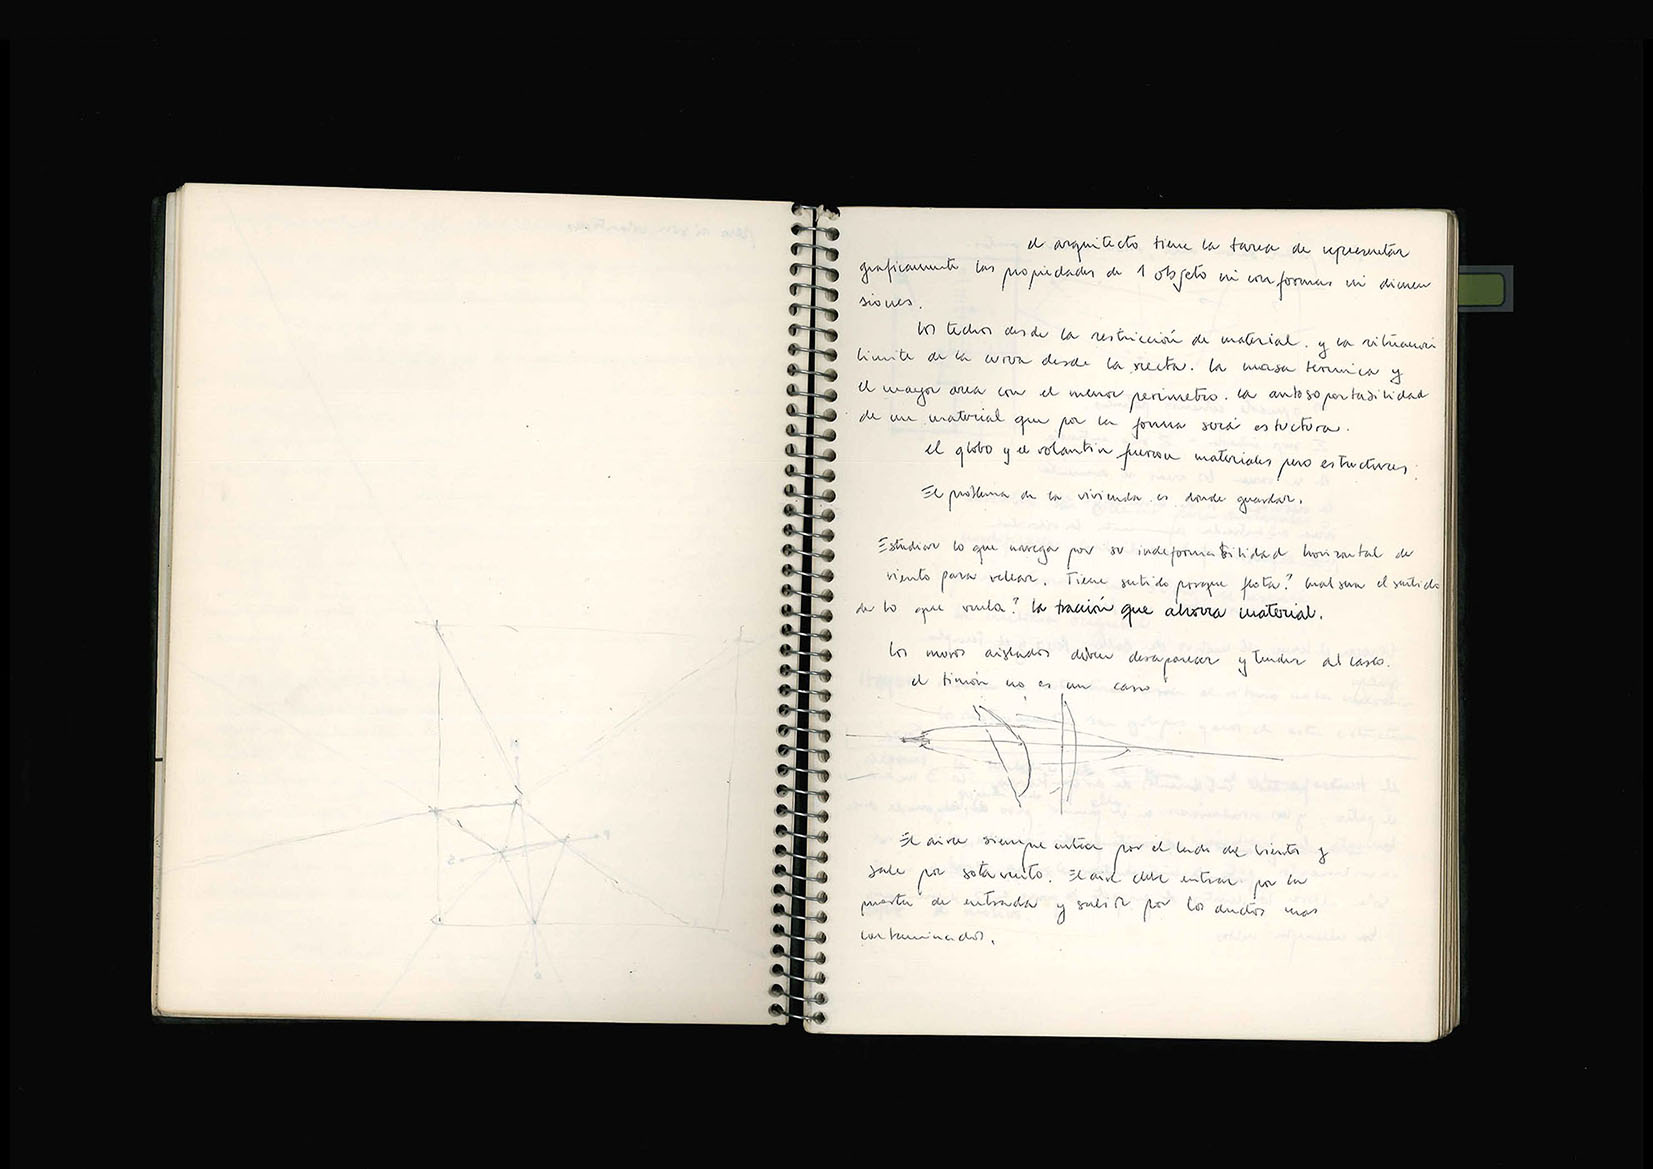 el arquitecto tiene la tarea de representar
graficamente las propiedades de 1 objeto ni con formas ni dimen
siones.
los techos desde la restricción de material. y la situación
limite de la curva desde la recta. la masa termica y
el mayor area con el menor perimetro. la autosoportabilidad
de un material que por la forma será estructura.
el globo y el volantin fueron materiales pero estructuras.
El problema de la vivienda es donde guardar.
Estudiar lo que navega por su indeformabilidad horizontal de
viento para velear. Tiene sentido porque flota? cual sera el sentido
de lo que vuela? la tracción que ahorra material.
los muros aislados deben desaparecer y tender al casco.
el timón no es un casco
El aire siempre entra por el lado del viento y
sale por sotavento. El aire debe entrar por la
puerta de entrada y salir por los ductos mas
contaminados.